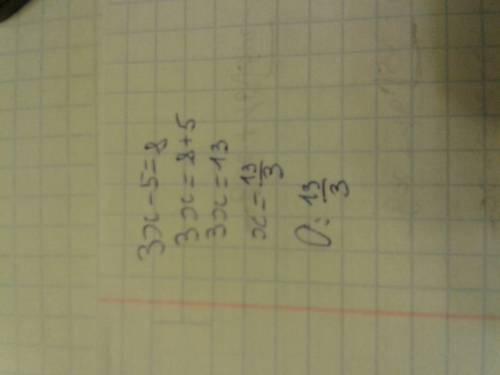 3x-5=8
3x=8+5
3x=13
x=13/3
O: 13/3